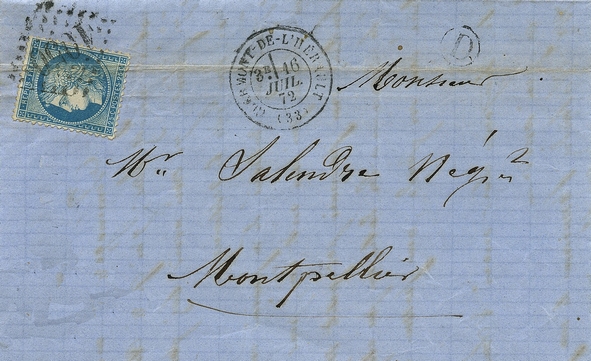 CLERMONT-DE-L'HÉRAULT
3E 16
JUIL.
72
(33)
D
Monsieur
Mr Salendre Négt
Montpellier